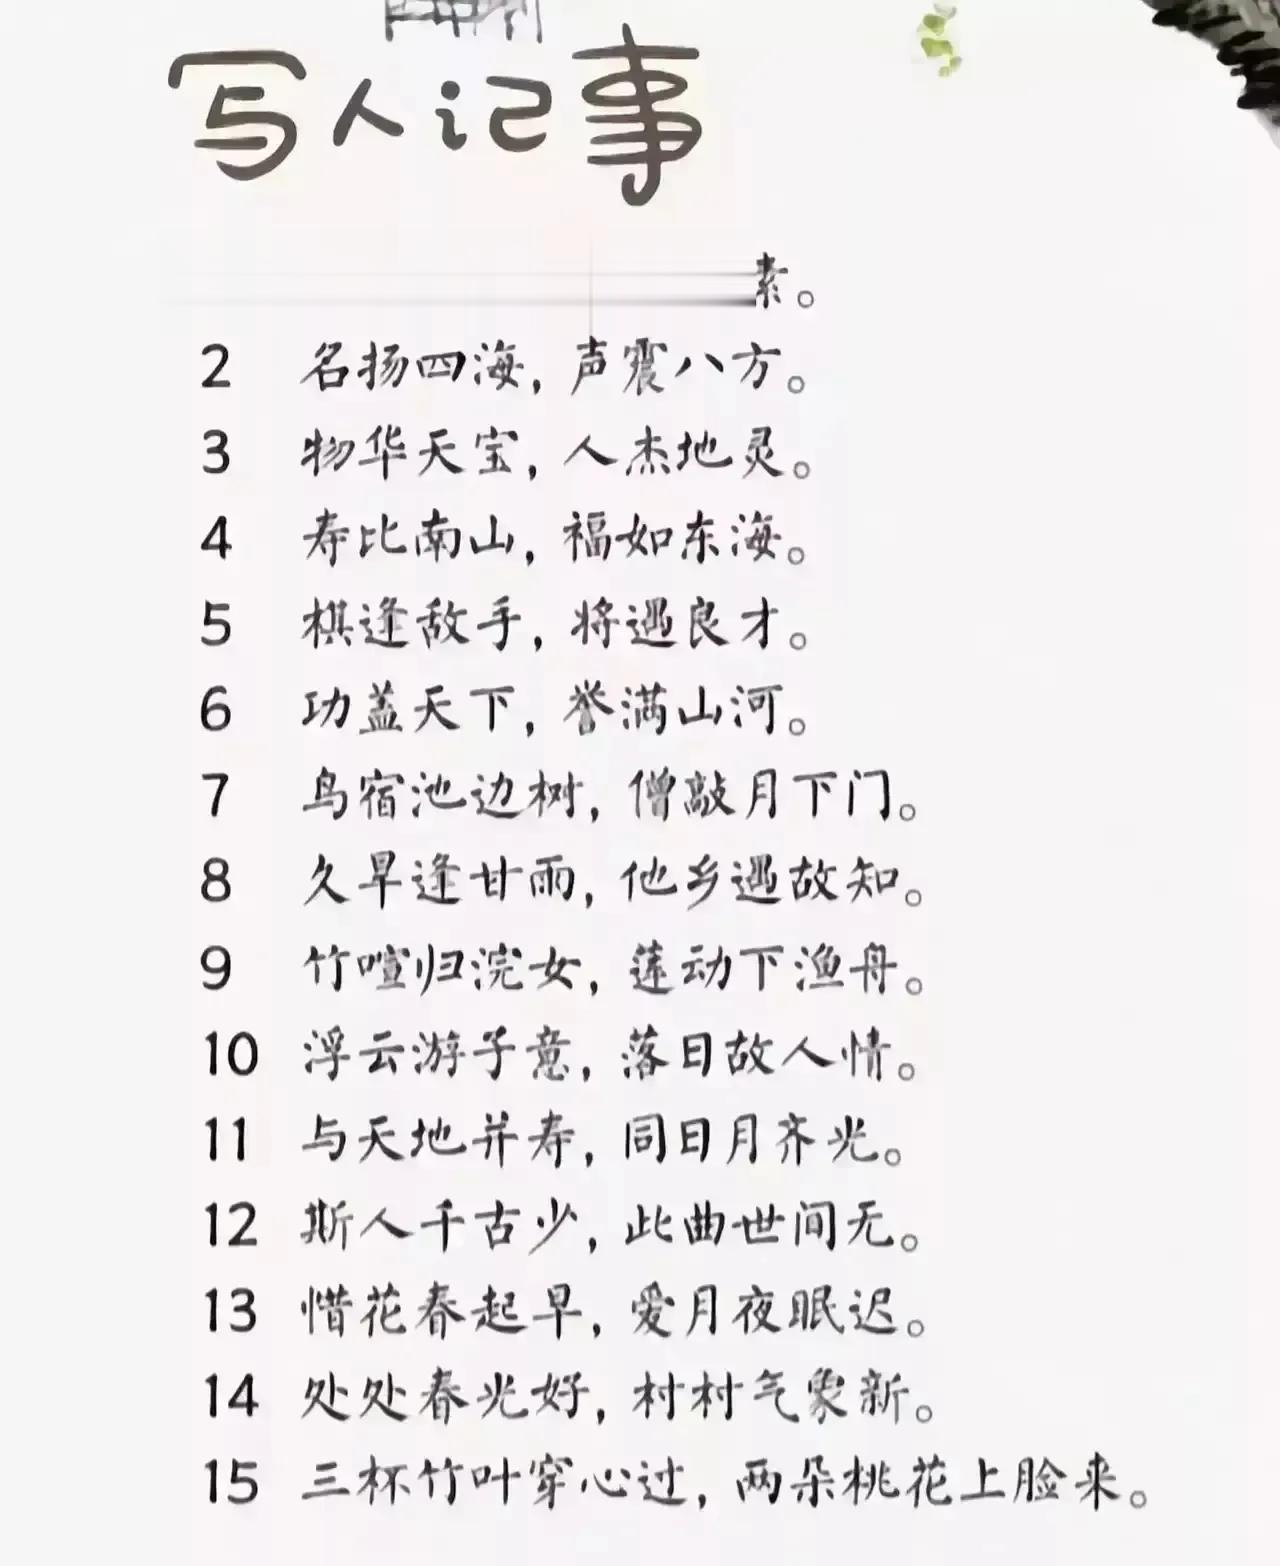 写人记事
素。
2 名扬四海，声震八方。
3 物华天宝，人杰地灵。
4 寿比南山，福如东海。
5 棋逢敌手，将遇良才。
6 功盖天下，誉满山河。
7 鸟宿池边树，僧敲月下门。
8 久旱逢甘雨，他乡遇故知。
9 竹喧归浣女，莲动下渔舟。
10 浮云游子意，落日故人情。
11 与天地并寿，同日月齐光。
12 斯人千古少，此曲世间无。
13 惜花春起早，爱月夜眠迟。
14 处处春光好，村村气象新。
15 三杯竹叶穿心过，两朵桃花上脸来。